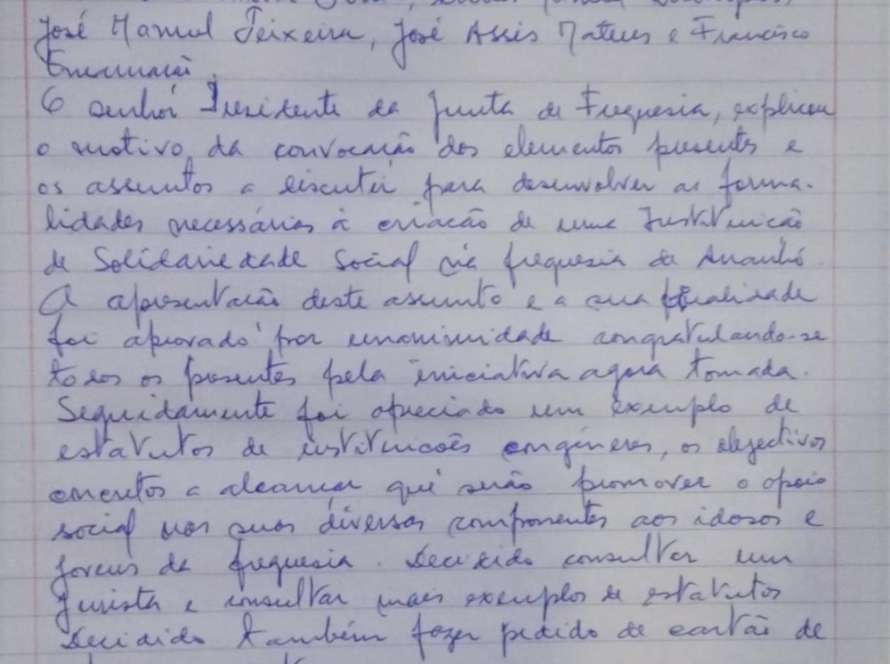 José Manuel Teixeira, José Assis Mateus e Francisco
Encarnação.
O senhor Presidente da Junta de Freguesia, explicou
o motivo da convocação dos elementos presentes e
os assuntos a discutir para desenvolver as forma-
lidades necessárias à criação de uma Instituição
de Solidariedade Social na freguesia de
A apresentação deste assunto e a sua finalidade
foi aprovado por unanimidade congratulando-se
todos os presentes pela iniciativa agora tomada.
Seguidamente foi apreciado um exemplo de
estatutos de instituições congéneres, os objectivos
concretos a alcançar que serão promover o apoio
social nas suas diversas componentes aos idosos e
jovens da freguesia. Decidido consultar um
Jurista e consultar mais exemplos de estatutos
Decidido também fazer pedido de cartão de